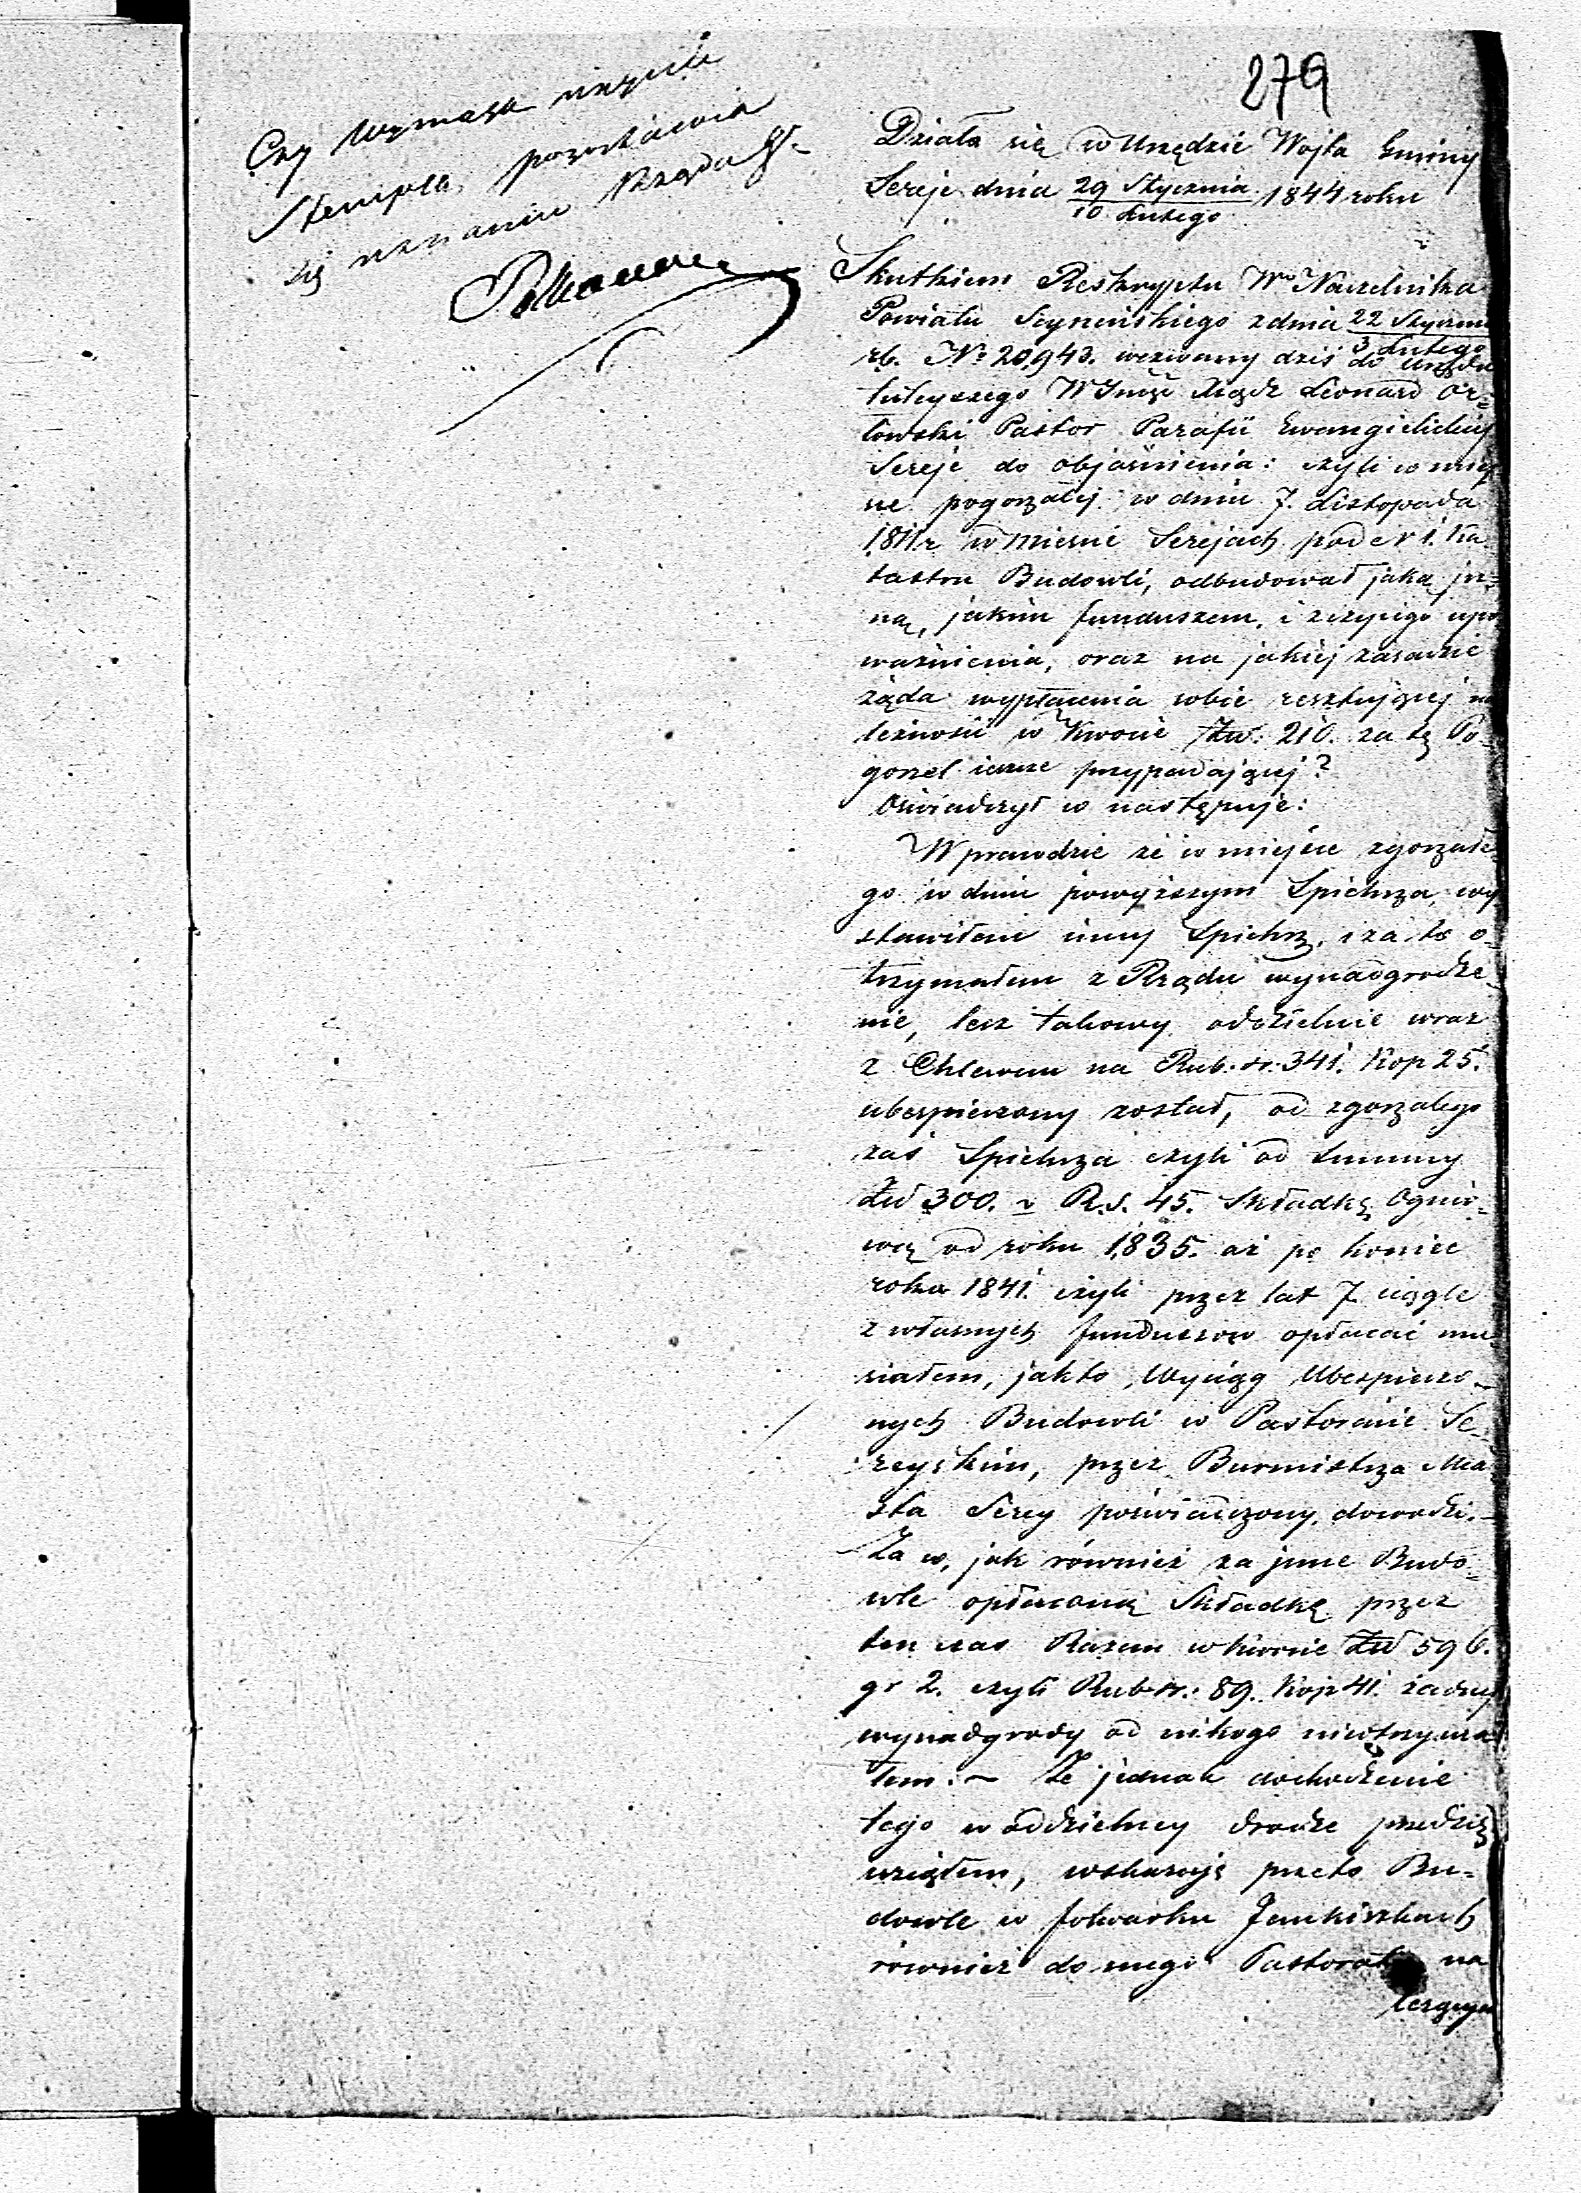 279
Czy wymaga użycia
Stempla, pozostawia
się uznaniu Rządu G.
Działo się w Urzędzie Wójta Gminy
Sereje dnia 29 Stycznia / 10 Lutego 1844 roku
Skutkiem Reskryptu Wo Naczelnika
Powiatu Seyneńskiego z dnia 22 Stycznia / 3 Lutego
rb. No 20,943. wezwany dziś do Urzędu
tuteyszego WJmść Xiądz Leonard Or=
łowski Pastor Parafii Ewangielickiey
Sereje do objaśnienia: czyli w miey
sce pogorzałej w dniu 7. Listopada
1811 r w Mieście Serejach pod Nr 1. Ka
tastru Budowli, odbudował jaką in=
ną, jakim funduszem, i z czyiego upo
ważnienia, oraz na jakiej zasadzie
żąda wypłacenia sobie resztującej na
leżności w Kwocie Złw: 210. za tę Po-
gorzel jeszcze przypadającej?
Oświadczył co następuje:
Wprawdzie że w miejsce zgorzałe-
go w dniu powyższym Spichrza, wy
stawiłem inny Spichrz, i za to o-
trzymałem z Rządu wynadgrodze
nie, lecz takowy oddzielnie wraz
z Chlewem na Rub. sr. 341. Kop 25.
ubezpieczony został, od zgorzałego
zaś Spichrza czyli od Summy
Złw 300. v R.S. 45. Składkę Ognio-
wą od roku 1835. aż po koniec
roku 1841. czyli przez lat 7 ciągle
z własnych funduszów opłacać mu
siałem, jak to, Wyciąg Ubezpieczo-
nych Budowli w Pastoracie Se-
reyskim, przez Burmistrza Mia
sta Serey poświadczony, dowodzi.-
Za co, jak również za inne Budo-
wle opłaconą Składkę przez
ten czas Razem w kwocie Złw 596.
gr 2. czyli Rub sr: 89. Kop 41. żadnej
wynadgrody od nikogo nieotrzyma
łem. ~ Że jednak dochodzenie
tego w oddzielney drodze przedsię
wziąłem, wskazuję przeto Bu=
dowle w folwarku Jankiszkach
również do mego Pastoratu na
leżącym